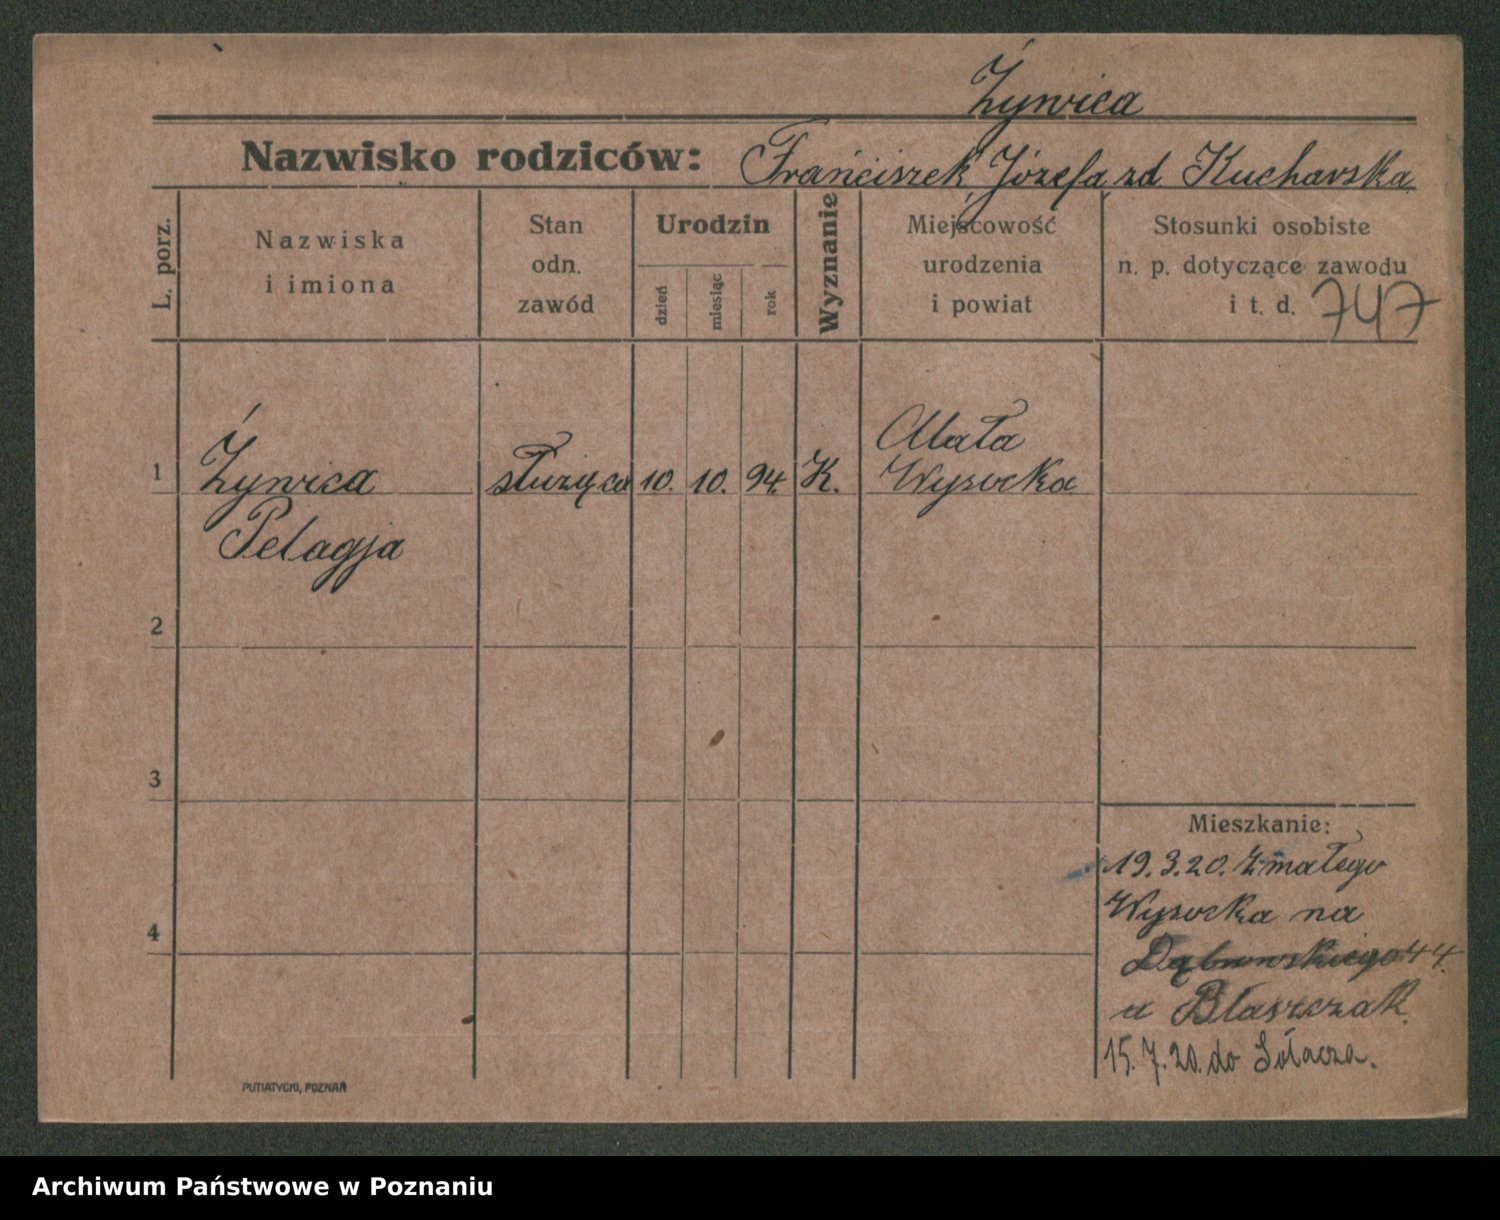 Żywica
Nazwisko rodziców: Franciszek, Józefa zd Kucharska
L. porz.
Nazwiska
i imiona
Stan
odn.
zawód
Urodzin
dzień
miesiąc
rok
Wyznanie
Miejscowość
urodzenia
i powiat
Stosunki osobiste
n. p. dotyczące zawodu
i t. d. 747
1 Żywica służąca 10. 10. 94. K. Mała Wysocka
Pelagja
2
3
4
Mieszkanie:
19.3.20. Z małego
Wysocka na
Dąbrowskiego 44.
u Blaszczak.
15.7.20. do Sołacza.
PUTIATYCKI, POZNAŃ
Archiwum Państwowe w Poznaniu